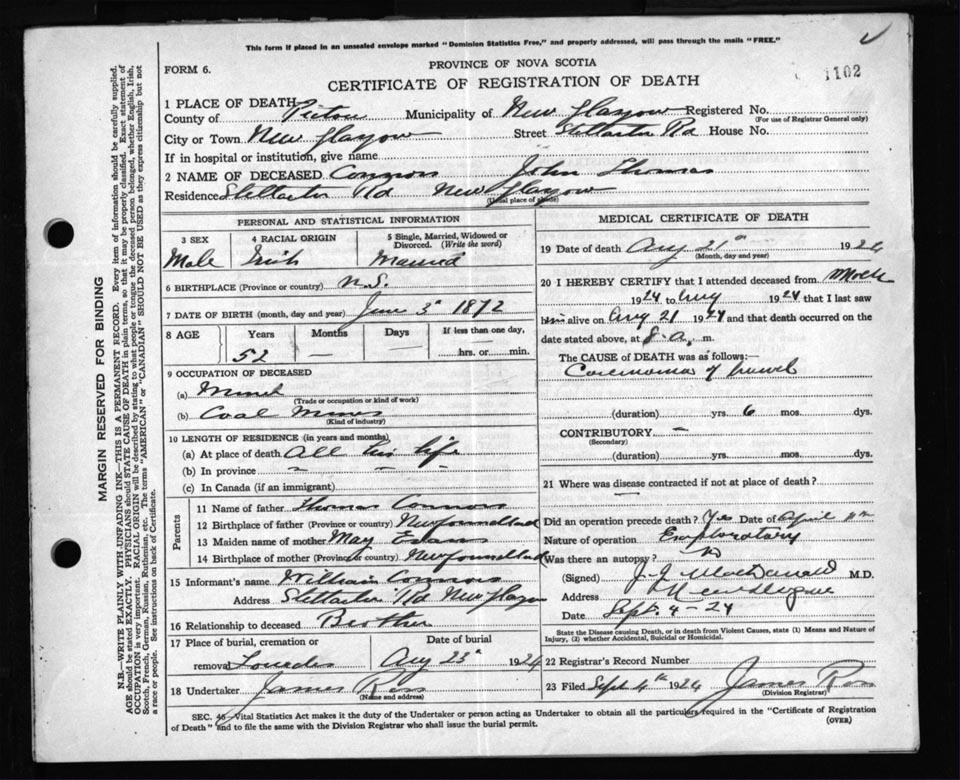 This form if placed in an unsealed envelope marked "Dominion Statistics Free," and properly addressed, will pass through the mails "FREE."
PROVINCE OF NOVA SCOTIA
FORM 6.
CERTIFICATE OF REGISTRATION OF DEATH
1102
1 PLACE OF DEATH
County of Pictou Municipality of New Glasgow Registered No.
(For use of Registrar General only)
City or Town New Glasgow Street Stellarton Rd House No.
If in hospital or institution, give name
2 NAME OF DECEASED Connors John Thomas
Residence Stellarton Rd New Glasgow
(Usual place of abode)
PERSONAL AND STATISTICAL INFORMATION
3 SEX 4 RACIAL ORIGIN 5 Single, Married, Widowed or Divorced. (Write the word)
Male Irish Married
6 BIRTHPLACE (Province or country) N.S.
7 DATE OF BIRTH (month, day and year) June 3" 1872
8 AGE Years Months Days If less than one day,
52 — — hrs. or min.
9 OCCUPATION OF DECEASED
(a) Miner
(Trade or occupation or kind of work)
(b) Coal Mines
(Kind of industry)
10 LENGTH OF RESIDENCE (in years and months)
(a) At place of death All his life
(b) In province " " "
(c) In Canada (if an immigrant)
Parents
11 Name of father Thomas Connors
12 Birthplace of father (Province or country) Newfoundland
13 Maiden name of mother May Evans
14 Birthplace of mother (Province or country) Newfoundland
15 Informant's name William Connors
Address Stellarton Rd New Glasgow
16 Relationship to deceased Brother
17 Place of burial, cremation or removal Lourdes Date of burial Aug 23" 1924
18 Undertaker James Ross
(Name and address)
MEDICAL CERTIFICATE OF DEATH
19 Date of death Aug 21" 1924
(Month, day and year)
20 I HEREBY CERTIFY that I attended deceased from March
1924 to Aug 1924 that I last saw
him alive on Aug 21 1924 and that death occurred on
date stated above, at 8 a. m.
The CAUSE of DEATH was as follows:—
Carcinoma of bowel
(duration) yrs. 6 mos. dys.
CONTRIBUTORY —
(Secondary)
(duration) yrs. mos. dys.
21 Where was disease contracted if not at place of death?
—
Did an operation precede death? Yes Date of April
Nature of operation Exploratory
Was there an autopsy? No
(Signed) J. J. MacDonald M.D.
Address New Glasgow
Date Sept. 4-24
State the Disease causing Death, or in death from Violent Causes, state (1) Means and Nature of Injury, (2) whether Accidental, Suicidal or Homicidal.
22 Registrar's Record Number
23 Filed Sept 4th 1924 James Ross
(Division Registrar)
SEC. 46—Vital Statistics Act makes it the duty of the Undertaker or person acting as Undertaker to obtain all the particulars required in the "Certificate of Registration
of Death" and to file the same with the Division Registrar who shall issue the burial permit.
(OVER)
MARGIN RESERVED FOR BINDING
N.B.—WRITE PLAINLY WITH UNFADING INK—THIS IS A PERMANENT RECORD. Every item of information should be carefully supplied.
AGE should be stated EXACTLY. PHYSICIANS should STATE CAUSE OF DEATH in plain terms, so that it may be properly classified. Exact statement of
OCCUPATION is very important. RACIAL ORIGIN will be described by stating to what people or tongue the deceased person belonged, whether English, Irish,
Scotch, French, German, Russian, Ruthenian, etc. The terms "AMERICAN" or "CANADIAN" SHOULD NOT BE USED as they express citizenship but not
a race or people. See instructions on back of Certificate.